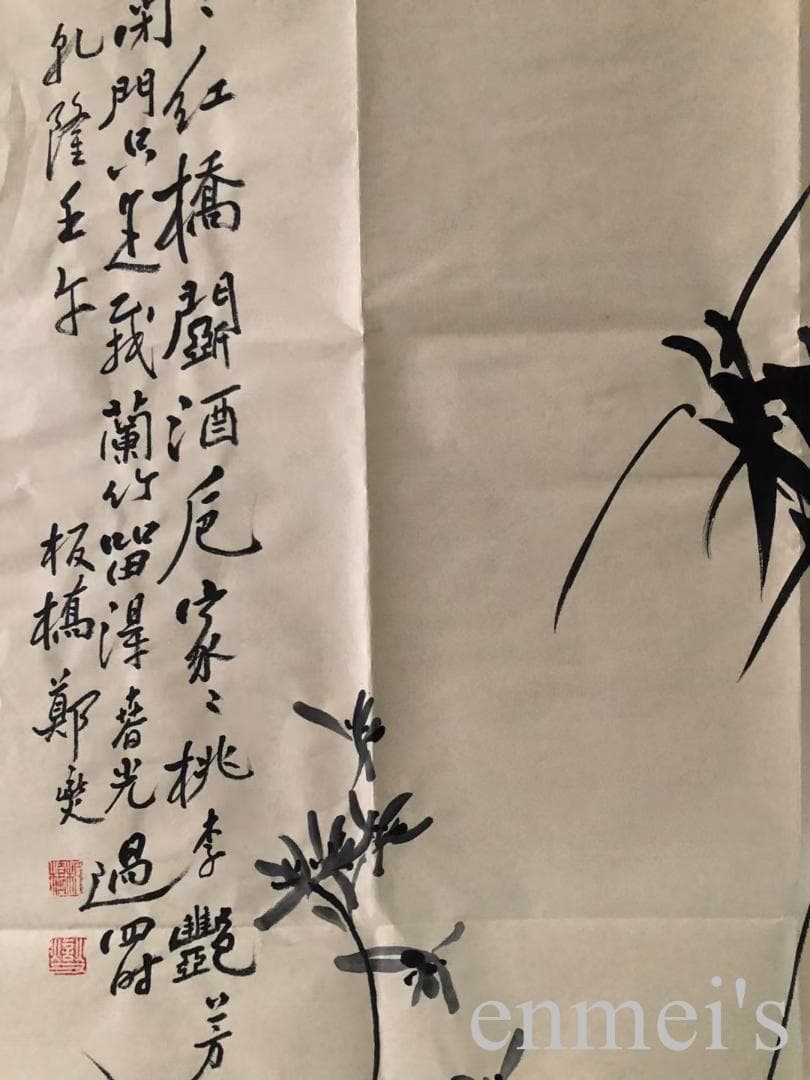 〻紅橋鬭酒卮家〻桃李艷芳
閉門只是栽蘭竹留得春光過四时
乾隆壬午
板橋鄭燮
enmei's